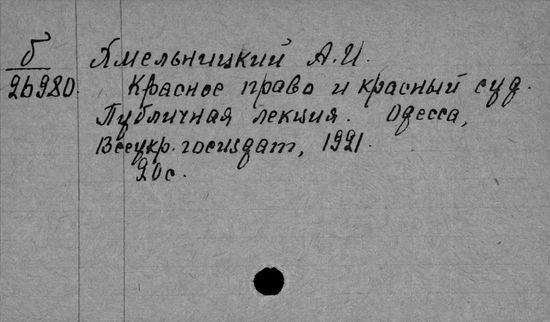 б Хмельницкий А.И.
26980 Красное право и красный суд.
Публичная лекция. Одесса,
Всеукр. госиздат, 1921.
20с.